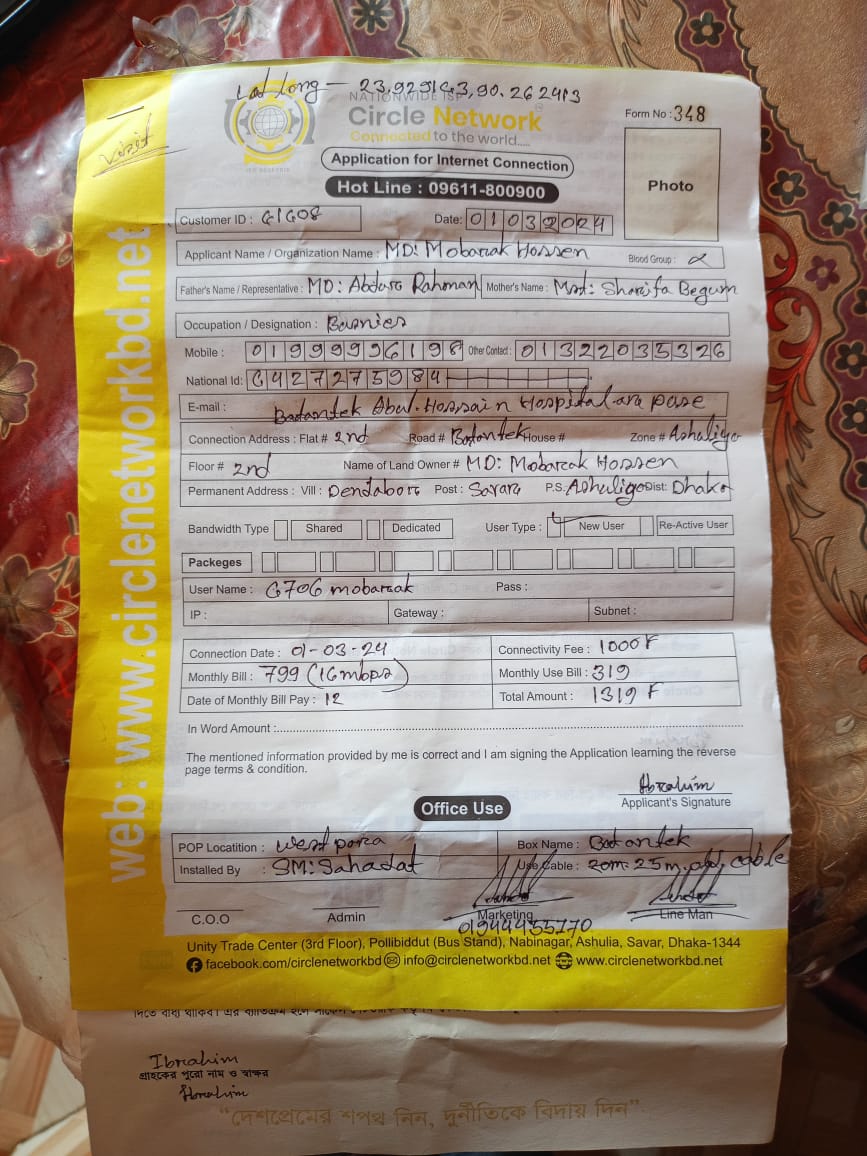 Lat long - 23.929143,90.262413
NATIONWIDE ISP
Circle Network
Connected to the world.....
Form No : 348
Application for Internet Connection
Photo
Hot Line : 09611-800900
Customer ID : G1G08
Date: 01032024
Applicant Name / Organization Name : MD: Mobarak Hossen
Blood Group :
Father's Name / Representative : MD: Abdur Rahman Mother's Name : Mst: Sharifa Begum
Occupation / Designation :
Mobile : 01999996198 Other Contact : 01322035326
National Id: 6427275984
E-mail :
Batantek Abul Hossain Hospital ara pase
Connection Address : Flat # 2nd Road # Batantek House # Zone # Ashuliya
Floor # 2nd Name of Land Owner # MD: Mobarak Hossen
Permanent Address : Vill : Dendabor Post : Savar P.S. Ashuliya Dist: Dhaka
Bandwidth Type Shared Dedicated User Type : New User Re-Active User
Packeges
User Name : G706 mobarak Pass :
IP : Gateway : Subnet :
Connection Date : 01-03-24 Connectivity Fee : 1000
Monthly Bill : 799 (16mbps) Monthly Use Bill : 319
Date of Monthly Bill Pay : 12 Total Amount : 1319
In Word Amount :
The mentioned information provided by me is correct and I am signing the Application learning the reverse
page terms & condition.
Ibrahim
Applicant's Signature
Office Use
POP Locatition : west para Box Name : Batantek
Installed By : SM: Sahadat Use Cable : 20m. 25m. cable
C.O.O Admin Marketing Line Man
01944455170
Unity Trade Center (3rd Floor), Pollibiddut (Bus Stand), Nabinagar, Ashulia, Savar, Dhaka-1344
facebook.com/circlenetworkbd info@circlenetworkbd.net www.circlenetworkbd.net
web: www.circlenetworkbd.net
Ibrahim
গ্রাহকের পুরো নাম ও স্বাক্ষর
Ibrahim
“দেশপ্রেমের শপথ নিন, দুর্নীতিকে বিদায় দিন”